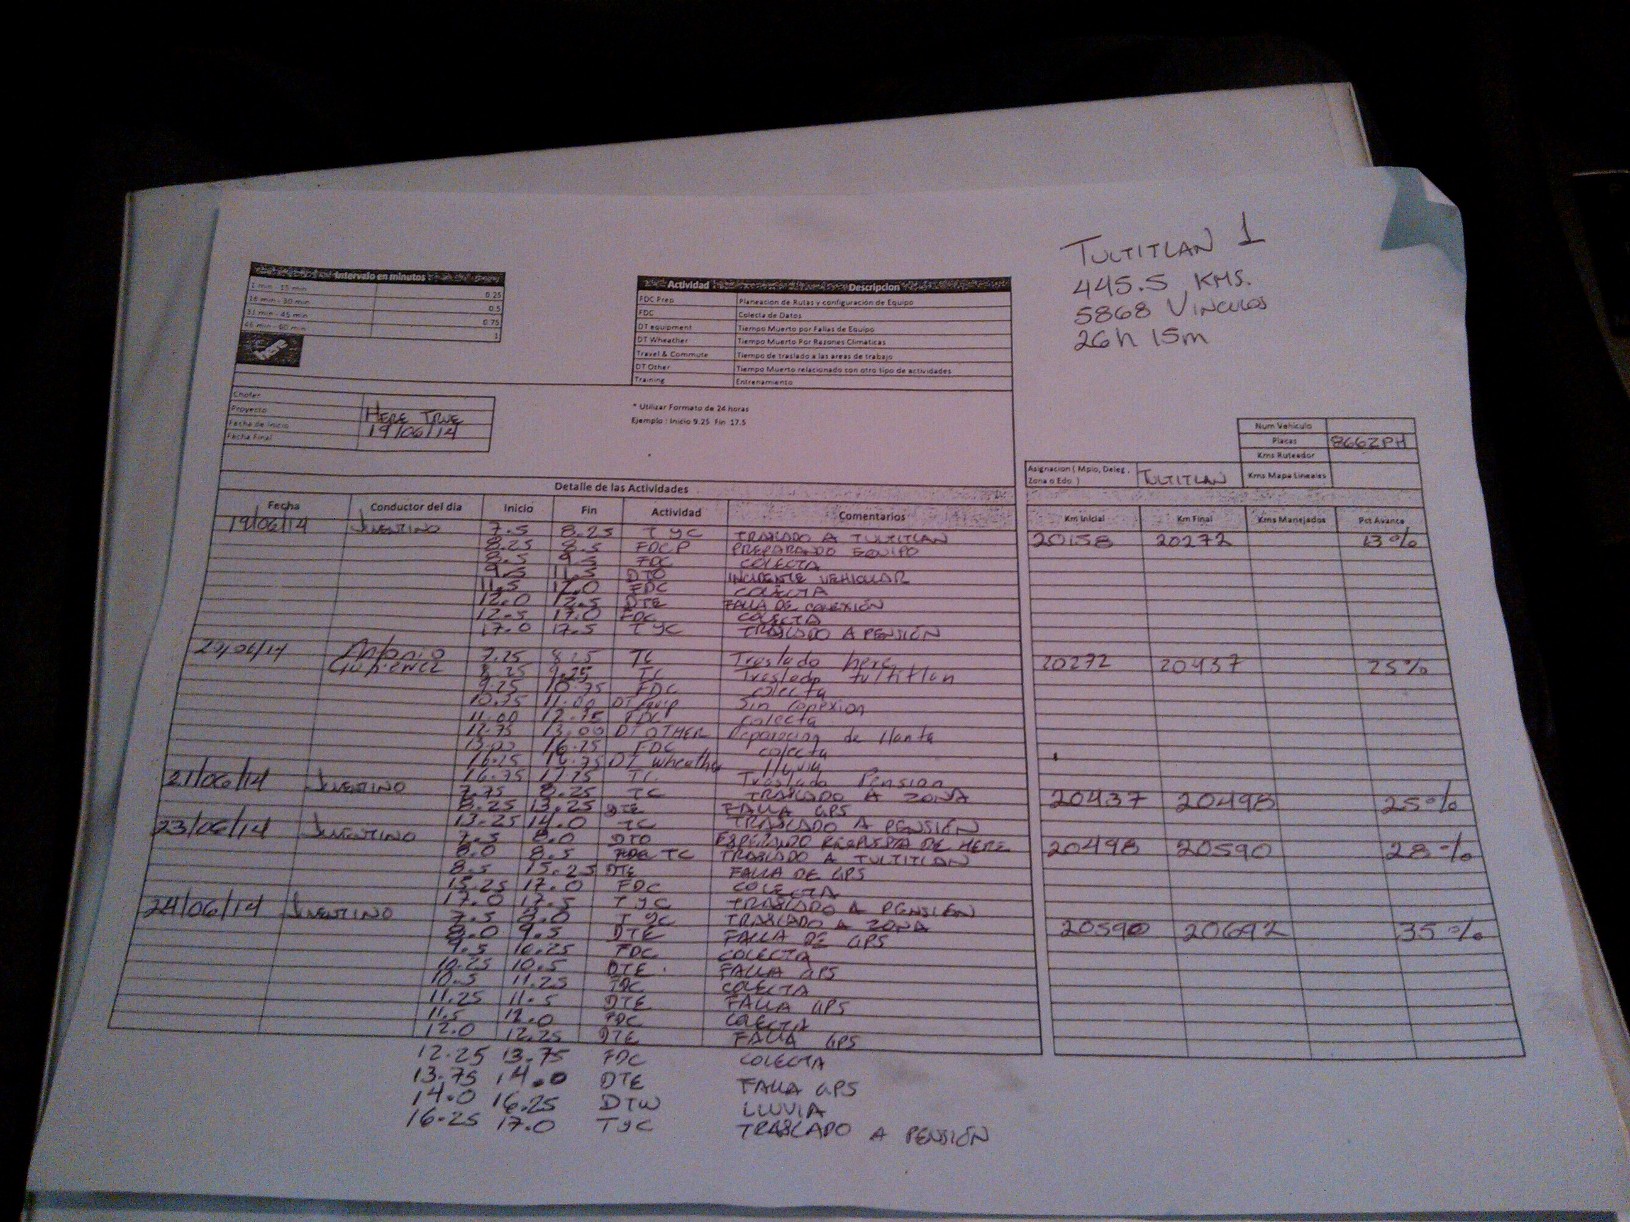 TULTITLAN 1
445.5 KMS.
5868 VINCULOS
26h 15m
Intervalo en minutos
1 min - 15 min 0.25
16 min - 30 min 0.5
31 min - 45 min 0.75
46 min - 60 min 1
Actividad Descripcion
FDC Prep Planeacion de Rutas y configuración de Equipo
FDC Colecta de Datos
DT equipment Tiempo Muerto por Fallas de Equipo
DT Wheather Tiempo Muerto Por Razones Climaticas
Travel & Commute Tiempo de traslado a las areas de trabajo
DT Other Tiempo Muerto relacionado con otro tipo de actividades
Training Entrenamiento
Chofer
Proyecto HERE TRUE
Fecha de Inicio 19/06/14
Fecha Final
* Utilizar Formato de 24 horas
Ejemplo : Inicio 9.25 Fin 17.5
Num Vehiculo
Placas 866ZPH
Kms Ruteador
Asignacion ( Mpio, Deleg , Zona o Edo ) TULTITLAN Kms Mapa Lineales
Detalle de las Actividades
Fecha Conductor del dia Inicio Fin Actividad Comentarios Km Inicial Km Final Kms Manejados Pct Avance
19/06/14 JUVENTINO 7.5 8.25 T y C TRASLADO A TULTITLAN 20158 20272 13%
8.25 8.5 FDCP PREPARANDO EQUIPO
8.5 9.5 FDC COLECTA
9.5 11.5 DTO INCIDENTE VEHICULAR
11.5 12.0 FDC COLECTA
12.0 12.5 DTE FALLA DE CONEXIÓN
12.5 17.0 FDC COLECTA
17.0 17.5 T y C TRASLADO A PENSIÓN
20/06/14 Antonio 7.25 8.25 TC Traslado here 20272 20437 25%
Gutierrez 8.25 9.25 TC Traslado tultitlan
9.25 10.75 FDC colecta
10.75 11.00 DT equip Sin conexion
11.00 12.75 FDC colecta
12.75 13.00 DT OTHER Reparacion de llanta
13.00 16.25 FDC colecta
16.25 16.75 DT wheather lluvia
16.75 17.25 TC Traslado Pension
21/06/14 JUVENTINO 7.75 8.25 TC TRASLADO A ZONA 20437 20498 25%
8.25 13.25 DTE FALLA GPS
13.25 14.0 TC TRASLADO A PENSIÓN
23/06/14 JUVENTINO 7.5 8.0 DTO ESPERANDO RESPUESTA DE HERE 20498 20590 28%
8.0 8.5 TC TRASLADO A TULTITLAN
8.5 15.25 DTE FALLA DE GPS
15.25 17.0 FDC COLECTA
17.0 17.5 T y C TRASLADO A PENSIÓN
24/06/14 JUVENTINO 7.5 8.0 T y C TRASLADO A ZONA 20590 20692 35%
8.0 9.5 DTE FALLA DE GPS
9.5 10.25 FDC COLECTA
10.25 10.5 DTE. FALLA GPS
10.5 11.25 FDC COLECTA
11.25 11.5 DTE FALLA GPS
11.5 12.0 FDC COLECTA
12.0 12.25 DTE FALLA GPS
12.25 13.75 FDC COLECTA
13.75 14.0 DTE FALLA GPS
14.0 16.25 DTW LLUVIA
16.25 17.0 T y C TRASLADO A PENSIÓN